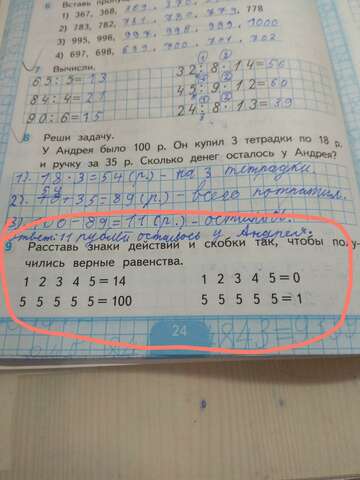 6 Вставь пропу
1) 367, 368, 369, 370,
2) 783, 782, 781, 780, 779, 778
3) 995, 996, 997, 998, 999, 1000
4) 697, 698, 699, 700, 701, 702
7 Вычисли.
65 : 5 = 13
32 : 8 · 14 = 56
84 : 4 = 21
45 : 9 · 12 = 60
90 : 6 = 15
24 : 8 · 13 = 39
8 Реши задачу.
У Андрея было 100 р. Он купил 3 тетрадки по 18 р.
и ручку за 35 р. Сколько денег осталось у Андрея?
1). 18 · 3 = 54 (р.) - на 3 тетрадки
54
2). + 35 = 89 (р.) - всего потратил.
3) 100 - 89 = 11 (р.) -
ответ: 11 рублей осталось у Андрея.
9 Расставь знаки действий и скобки так, чтобы полу-
чились верные равенства.
1 2 3 4 5 = 14
1 2 3 4 5 = 0
5 5 5 5 5 = 100
5 5 5 5 5 = 1
24